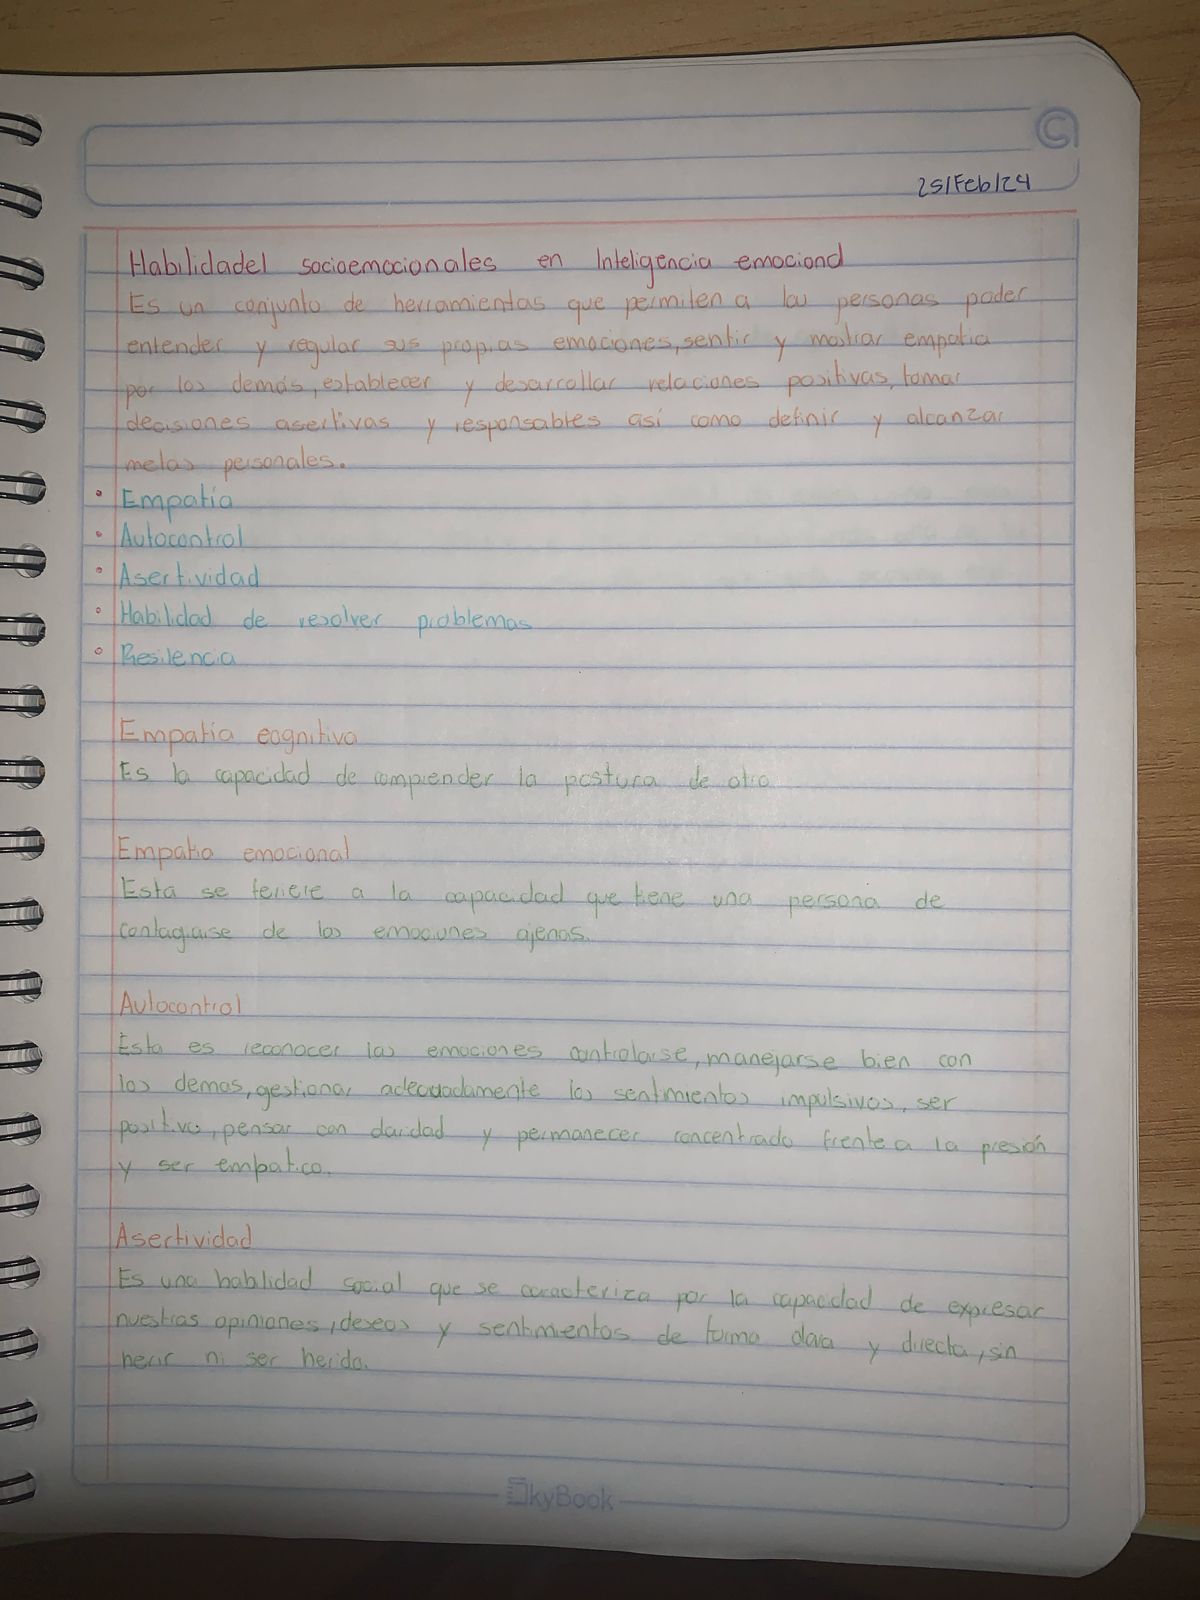 25/Feb/24
Habilidades socioemocionales en Inteligencia emocional
Es un conjunto de herramientas que permiten a las personas poder
entender y regular sus propias emociones, sentir y mostrar empatia
por los demás, establecer y desarrollar relaciones positivas, tomar
decisiones asertivas y responsables así como definir y alcanzar
metas personales.
• Empatía
• Autocontrol
• Asertividad
• Habilidad de resolver problemas
• Resilencia
Empatía cognitiva
Es la capacidad de comprender la postura de otro
Empatia emocional
Esta se refiere a la capacidad que tiene una persona de
contagiarse de las emociones ajenas.
Autocontrol
Esta es reconocer las emociones controlarse, manejarse bien con
los demas, gestionar adecuadamente los sentimientos impulsivos, ser
positivo, pensar con claridad y permanecer concentrado frente a la presión
y ser empatico.
Asertividad
Es una habilidad social que se caracteriza por la capacidad de expresar
nuestras opiniones, deseos y sentimientos de forma clara y directa, sin
herir ni ser herido.
SkyBook